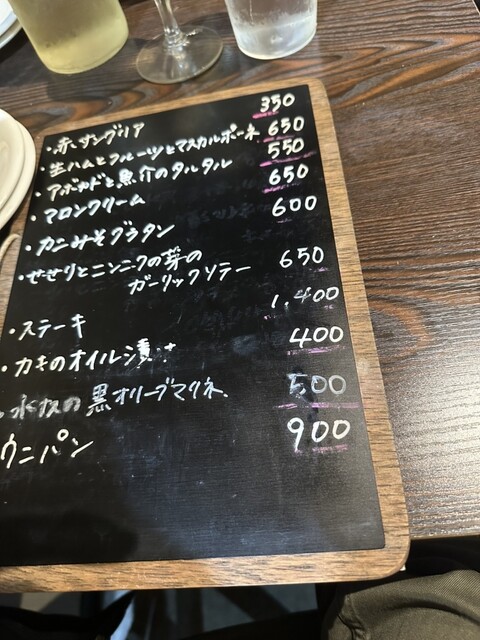 ・赤サングリア 350
・生ハムとフルーツとマスカルポーネ 650
・アボカドと魚介のタルタル 550
・マロンクリーム 650
・カニみそグラタン 600
・せせりとニンニクの芽の
ガーリックソテー 650
・ステーキ 1,400
・カキのオイル漬け 400
・水牧の黒オリーブマリネ. 500
ウニパン 900